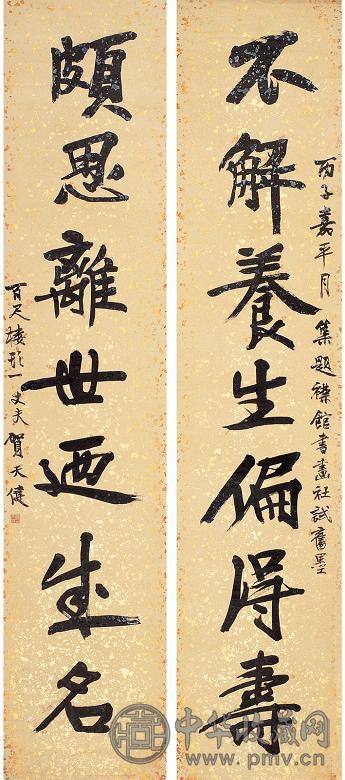 丙子嘉平月 集題襟館書畫社試舊墨
不解養生偏得壽
頗思離世迺成名
百尺樓頭一丈夫 賀天健
中华收藏网
www.pmv.cn